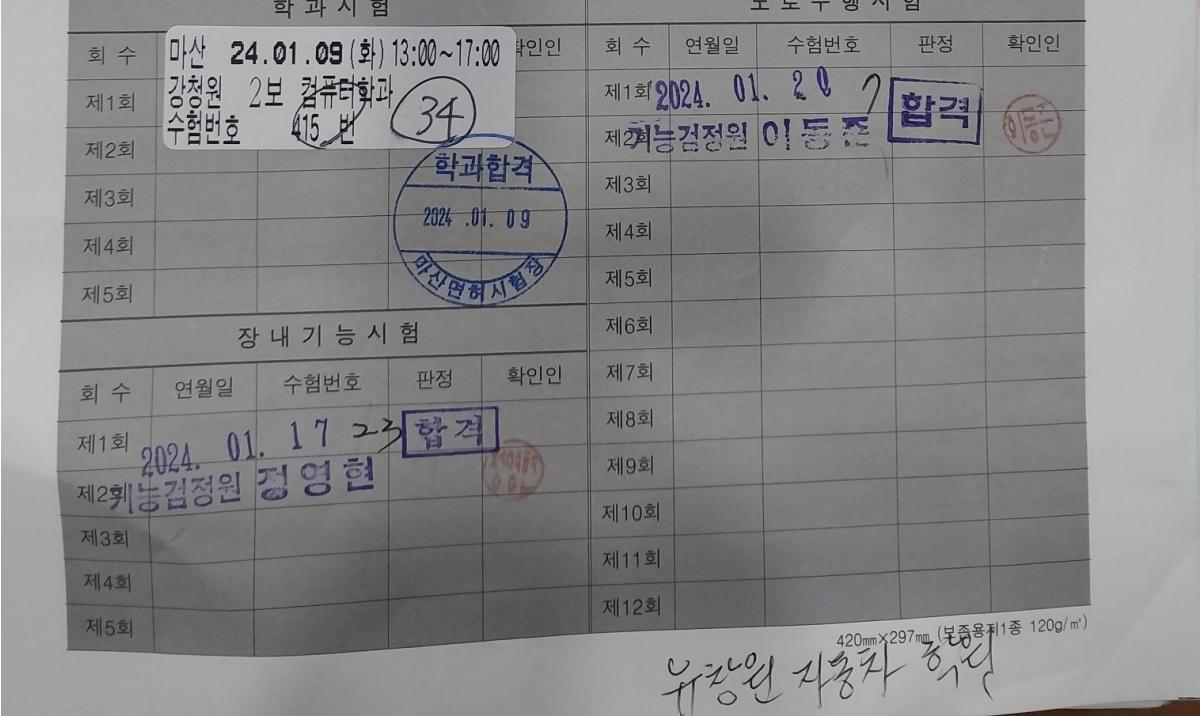 학 과 시 험
회 수
확인인
마산 24.01.09(화) 13:00~17:00
강청원 2보 컴퓨터학과
수험번호 415 번
34
제1회
제2회
제3회
제4회
제5회
학과합격
2024 .01. 09
마산면허시험장
장 내 기 능 시 험
회 수 연월일 수험번호 판정 확인인
제1회 2024. 01. 17 23 합격
제2회 기능검정원 정영현
제3회
제4회
제5회
도 로 주 행 시 험
회 수 연월일 수험번호 판정 확인인
제1회 2024. 01. 20 7 합격
제2회 기능검정원 이동준
제3회
제4회
제5회
제6회
제7회
제8회
제9회
제10회
제11회
제12회
420㎜×297㎜ (보존용지1종 120g/㎡)
자동차 학원